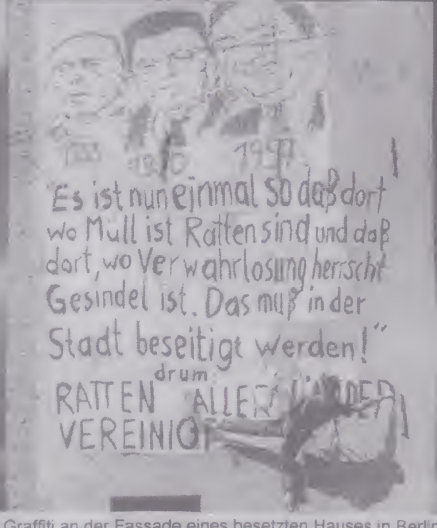 1933
1997
"Es ist nun einmal so daß dort
wo Müll ist Ratten sind und daß
dort, wo Verwahrlosung herrscht
Gesindel ist. Das muß in der
Stadt beseitigt werden!"
drum
RATTEN ALLER LÄNDER
VEREINIGT
Graffiti an der Fassade eines besetzten Hauses in Berlin